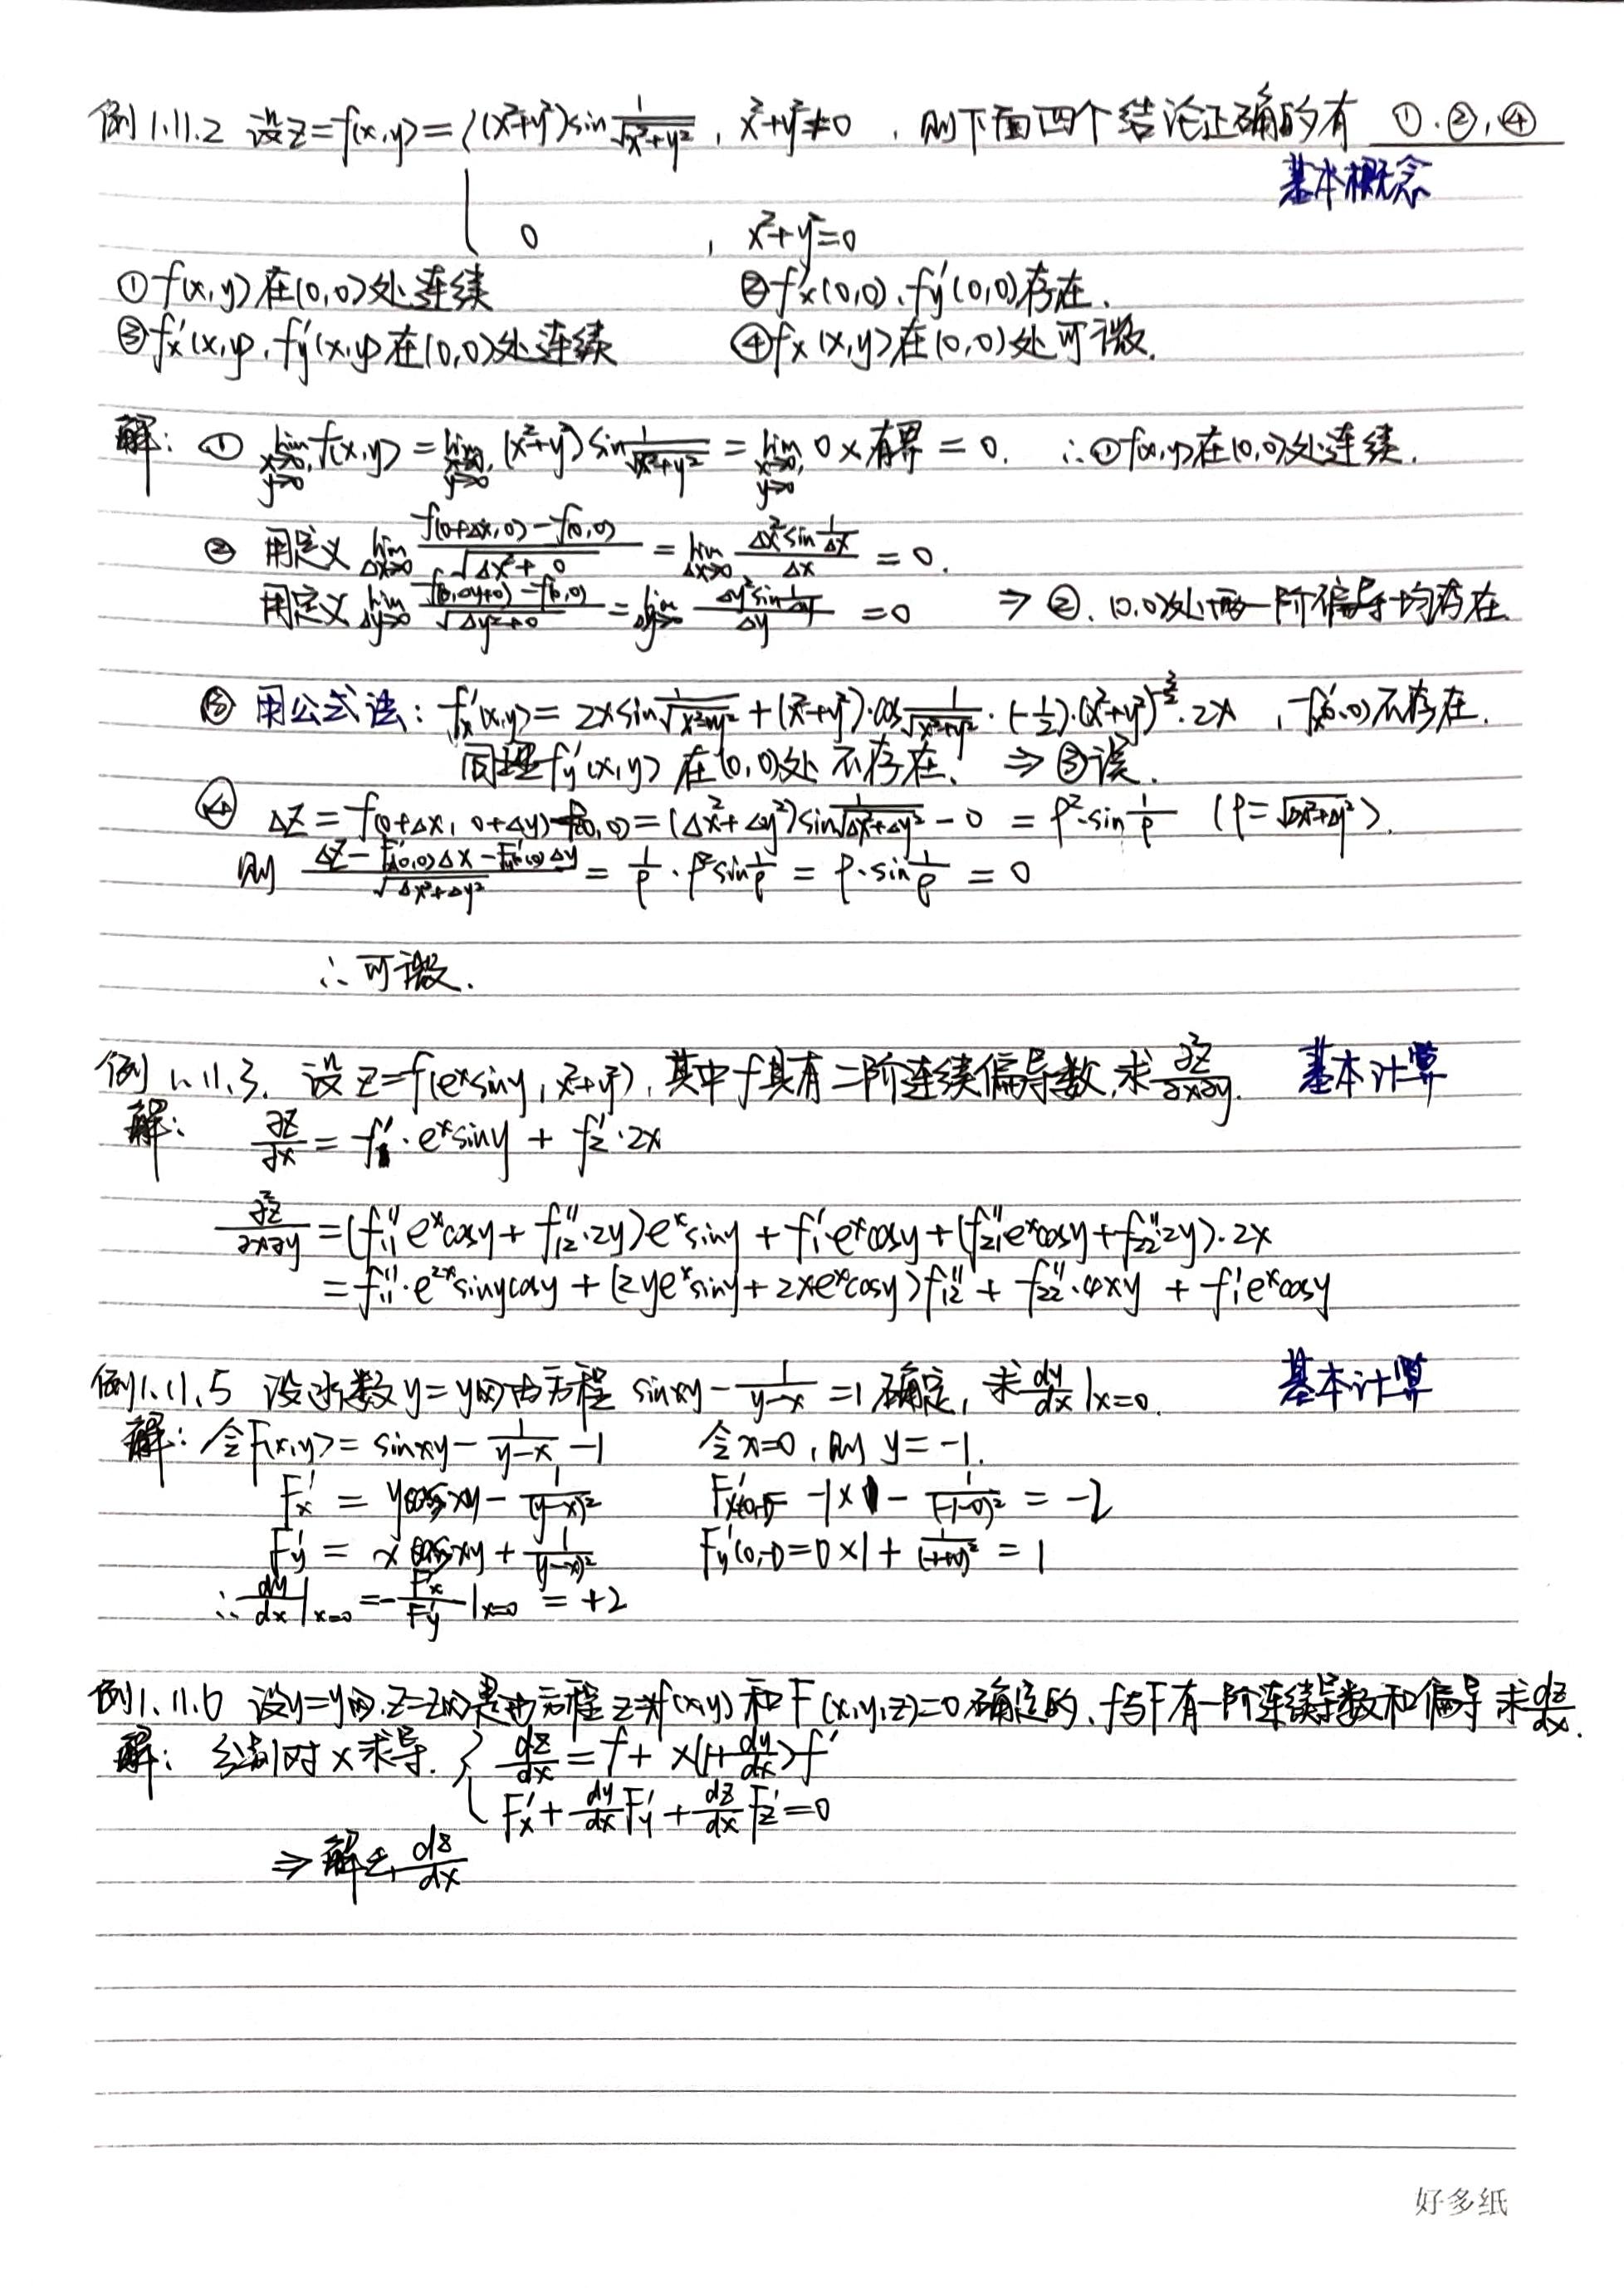 例1.11.2 设z=f(x,y)={(x²+y²)sin 1/√(x²+y²), x²+y²≠0 , 则下面四个结论正确的有 ①.②,④
基本概念
0 , x²+y²=0
①f(x,y)在(0,0)处连续 ②f'x(0,0)、f'y(0,0)存在.
③f'x(x,y), f'y(x,y)在(0,0)处连续 ④fx(x,y)在(0,0)处可微.
解: ① lim(x→0,y→0) f(x,y) = lim(x→0,y→0) (x²+y²) sin 1/√(x²+y²) = lim(x→0,y→0) 0×有界 = 0. ∴①f(x,y)在(0,0)处连续.
② 用定义 lim(Δx→0) [f(0+Δx,0)-f(0,0)]/√(Δx²+0) = lim(Δx→0) (Δx² sin 1/Δx)/Δx = 0.
用定义 lim(Δy→0) [f(0,Δy+0)-f(0,0)]/√(Δy²+0) = lim(Δy→0) (Δy² sin 1/Δy)/Δy = 0 ⇒ ②. (0,0)处两一阶偏导均存在.
③ 用公式法: f'x(x,y) = 2x sin 1/√(x²+y²) + (x²+y²)·cos 1/√(x²+y²)·(-1/2)·(x²+y²)^(-3/2)·2x , f'x(0,0)不存在.
同理f'y(x,y)在(0,0)处不存在. ⇒ ③误.
④ Δz = f(0+Δx, 0+Δy)-f(0,0) = (Δx²+Δy²)sin 1/√(Δx²+Δy²) - 0 = ρ²·sin 1/ρ (ρ=√(Δx²+Δy²)).
则 [Δz - F'x(0,0)Δx - F'y(0,0)Δy]/√(Δx²+Δy²) = 1/ρ · ρ² sin 1/ρ = ρ·sin 1/ρ = 0
∴可微.
例1.11.3. 设z=f(e^x siny, x²+y²), 其中f具有二阶连续偏导数, 求∂²z/∂x∂y. 基本计算
解: ∂z/∂x = f'1·e^x siny + f'2·2x
∂²z/∂x∂y = (f''11 e^x cosy + f''12·2y)e^x siny + f'1·e^x cosy + (f''21 e^x cosy + f''22 2y)·2x
= f''11·e^2x siny cosy + (2ye^x siny + 2xe^x cosy)f''12 + f''22·4xy + f'1 e^x cosy
例1.11.5 设函数y=y(x)由方程 sinxy - 1/(y-x) = 1确定, 求dy/dx|x=0. 基本计算
解: 令F(x,y) = sinxy - 1/(y-x) - 1 令x=0, 则 y=-1.
F'x = ycosxy - 1/(y-x)² F'x(0,-1) = -1×1 - 1/(-1-0)² = -2
F'y = xcosxy + 1/(y-x)² F'y(0,-1) = 0×1 + 1/(-1+0)² = 1
∴ dy/dx|x=0 = -F'x/F'y|x=0 = +2
例1.11.6 设y=y(x), z=z(x)是由方程z=xf(x+y)和F(x,y,z)=0确定的, f与F有一阶连续导数和偏导 求dz/dx.
解: 分别对x求导. { dz/dx = f + x(1+dy/dx)f'
F'x + dy/dx F'y + dz/dx F'z = 0
⇒ 解出 dz/dx
好多纸